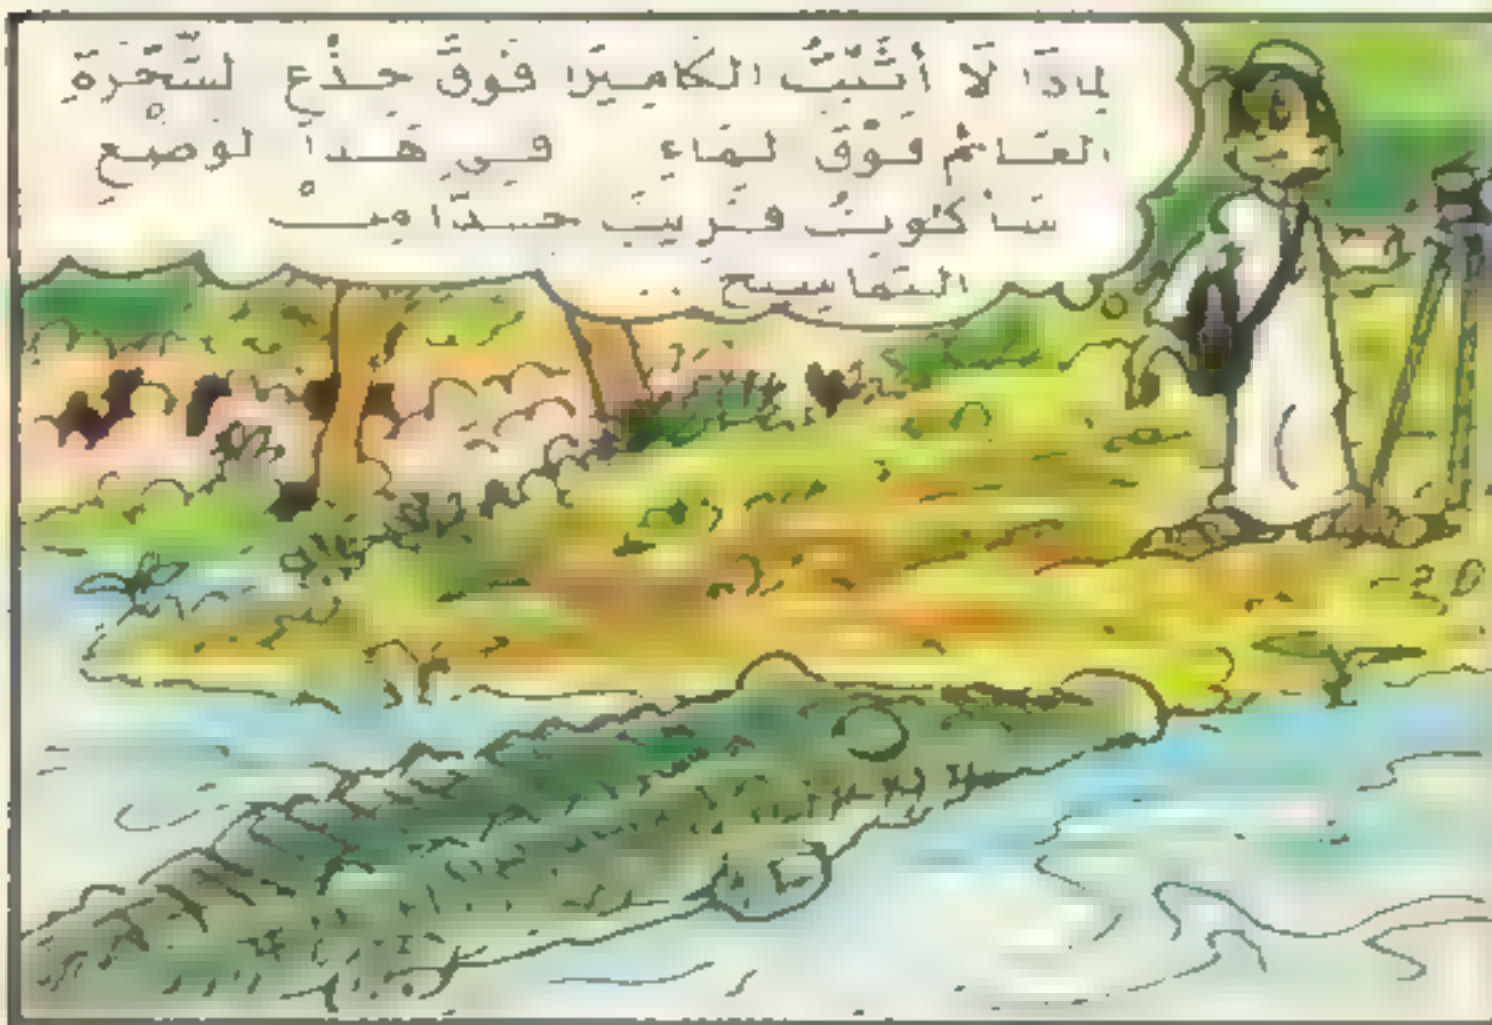 لماذا لَا أُثَبِّتُ الكاميرَا فَوقَ جذْعِ الشَّجَرَةِ
العَائمِ فَوْقَ المَاءِ فِي هَذا الوضْعِ
سَأكونُ قَريبَ جدًّا مِنْ
التمَاسيح ..